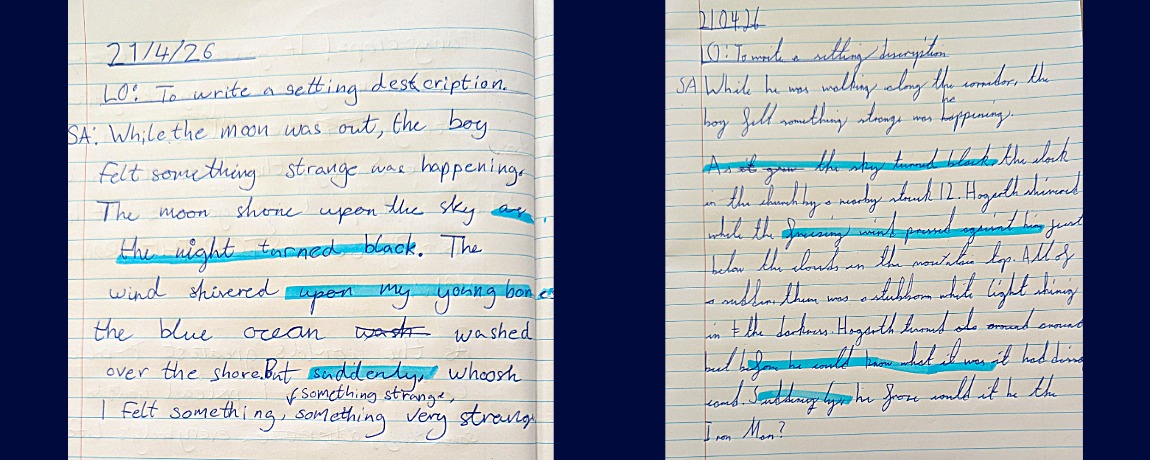 21/4/26
LO: To write a setting destcription.
SA: While the moon was out, the boy
felt something strange was happening.
The moon shone upon the sky as
the night tarned black. The
wind shivered upon my young bones
the blue ocean wash washed
over the shore. But suddenly, whoosh
something strange,
I felt something, something very strang
21.04.26
LO: To write a setting description
SA While he was walking along the corridor, the
he
boy fell something strange was happening.
As it grew the sky turned black, the clock
in the church by a nearby struck 12. Hogarth shivered
while the freezing wind pressed against him just
below the clouds on the mountain top. All of
a sudden there was a stubborn white light shining
in the darkness. Hogarth turned around around
but before he could know what it was it had disa
eared. Suddenly, he froze could it be the
Iron Man?